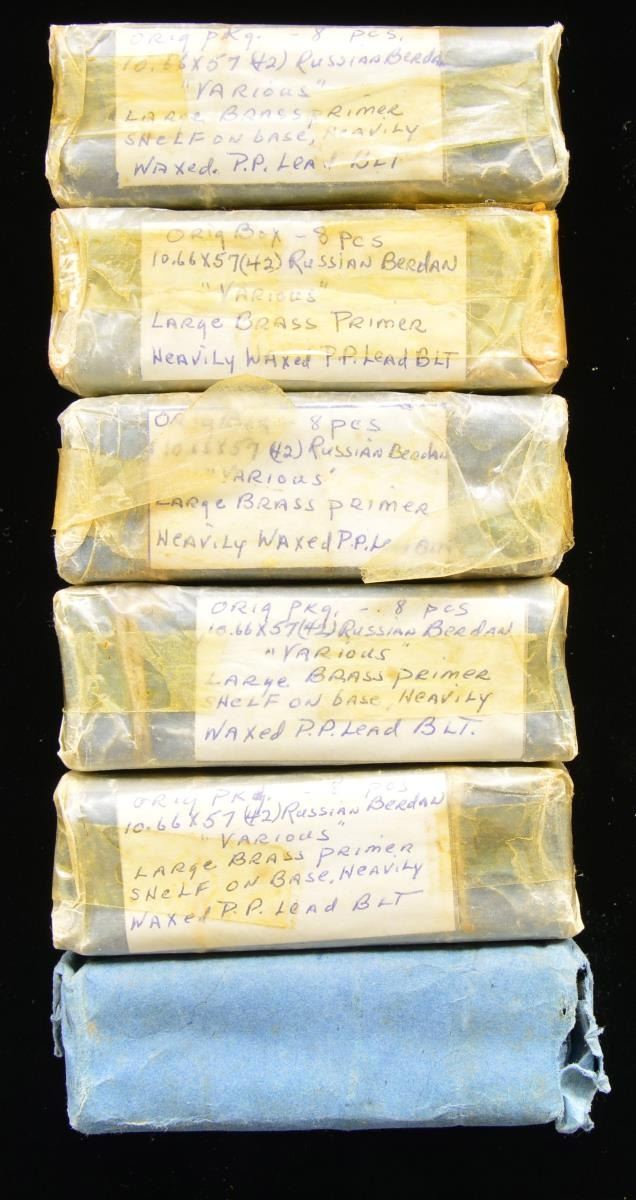 Orig pkg. - 8 pcs.
10.66X57 (42) Russian Berdan
"Various"
Large Brass primer
Shelf on base, Heavily
Waxed. P.P. Lead BLT
Orig Box - 8 pcs
10.66X57(42) Russian Berdan
"Various"
Large Brass Primer
Heavily Waxed P.P. Lead BLT
Orig Box - 8 pcs
10.66X57 (42) Russian Berdan
"Various"
Large Brass primer
Heavily Waxed P.P.
Orig pkg. - 8 pcs
10.66X57(42) Russian Berdan
"Various"
Large Brass primer
Shelf on base, Heavily
Waxed P.P. Lead BLT.
Orig pkg. - 8 pcs
10.66X57 (42) Russian Berdan
"Various"
Large Brass primer
Shelf on Base, Heavily
Waxed P.P. Lead BLT